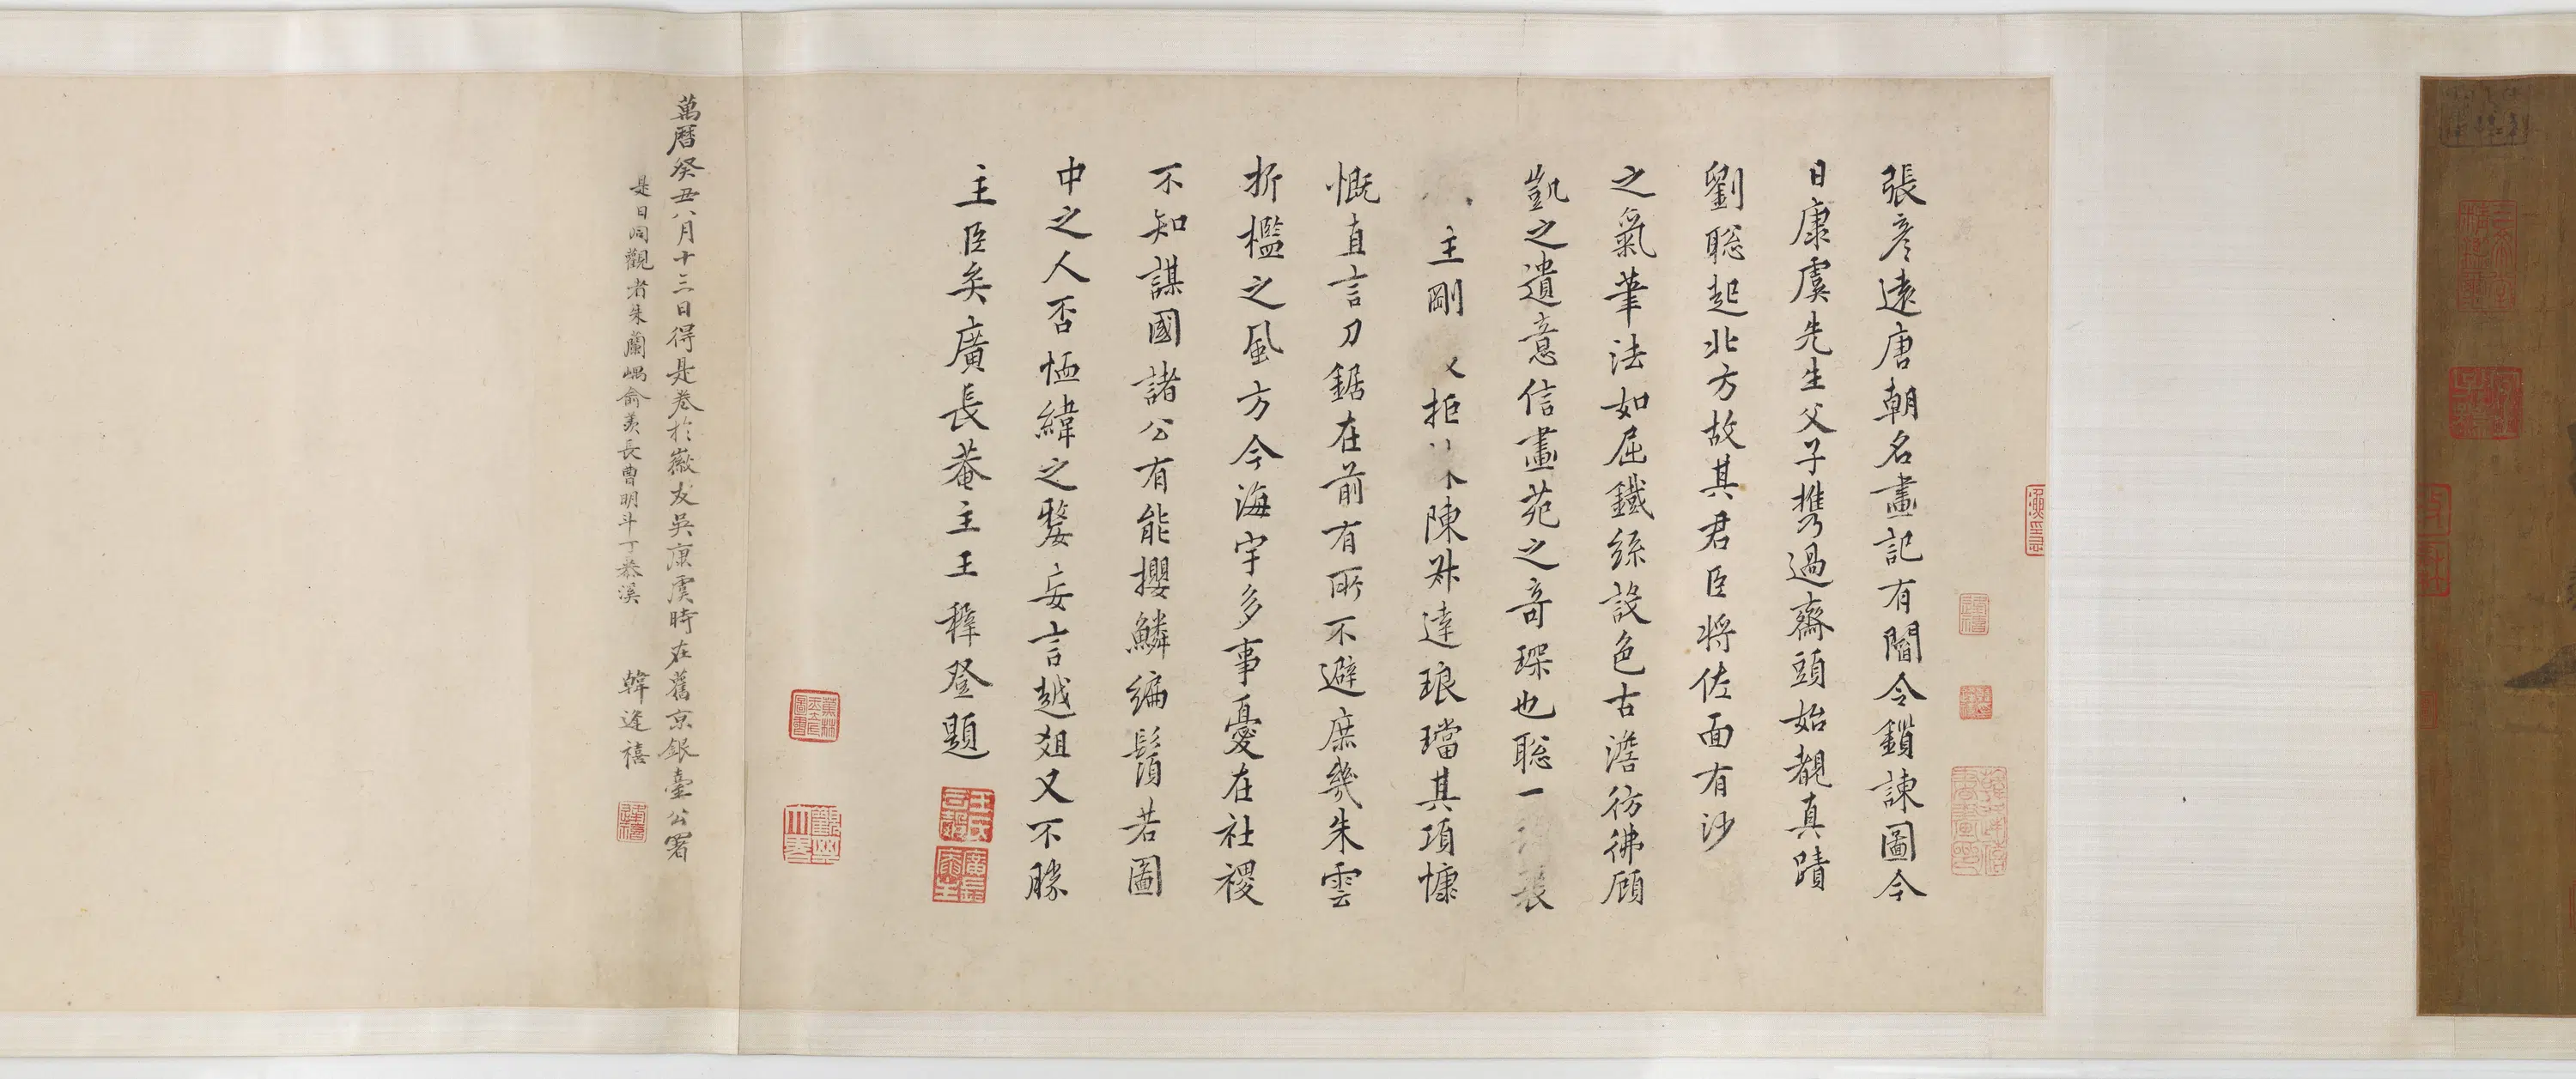 張彦遠唐朝名畫記有閻令鎖諫圖今
日康虞先生父子攜過齋頭始覩真蹟
劉聡起北方故其君臣将佐面有沙
之氣筆法如屈鐵絲設色古澹彷彿顧
凱之遺意信畫苑之奇琛也聡一
主剛 拒 陳叅達琅璫其項慷
慨直言刀鋸在前有所不避庶幾朱雲
折檻之風方今海宇多事憂在社稷
不知謀國諸公有能攖鱗編鬚若圖
中之人否恤緯之嫠妄言越爼又不勝
主臣矣廣長菴主王穉登題
萬曆癸丑八月十三日得是卷於徽友吳康虞時在舊京銀臺公署
是日同觀者朱蘭嵎俞羨長曹明斗丁慕溪 韓逢禧